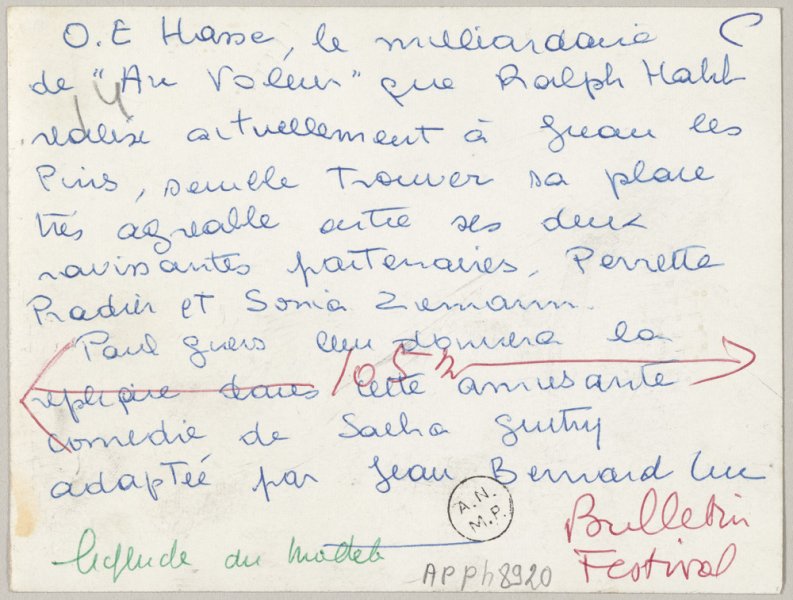 O.E Hasse, le milliardaire
de "Au Voleur" que Ralph Habib
14
réalise actuellement à Juan les
Pins, semble trouver sa place
très agréable entre ses deux
ravissantes partenaires, Perrette
Pradier et Sonia Ziemann.
Paul Guers leur donnera la
105 m
replique dans cette amusante
comedie de Sacha Guitry
adaptée par Jean Bernard Luc
A.N.
M.P.
Bulletin
légende du
APPh8920
Festival